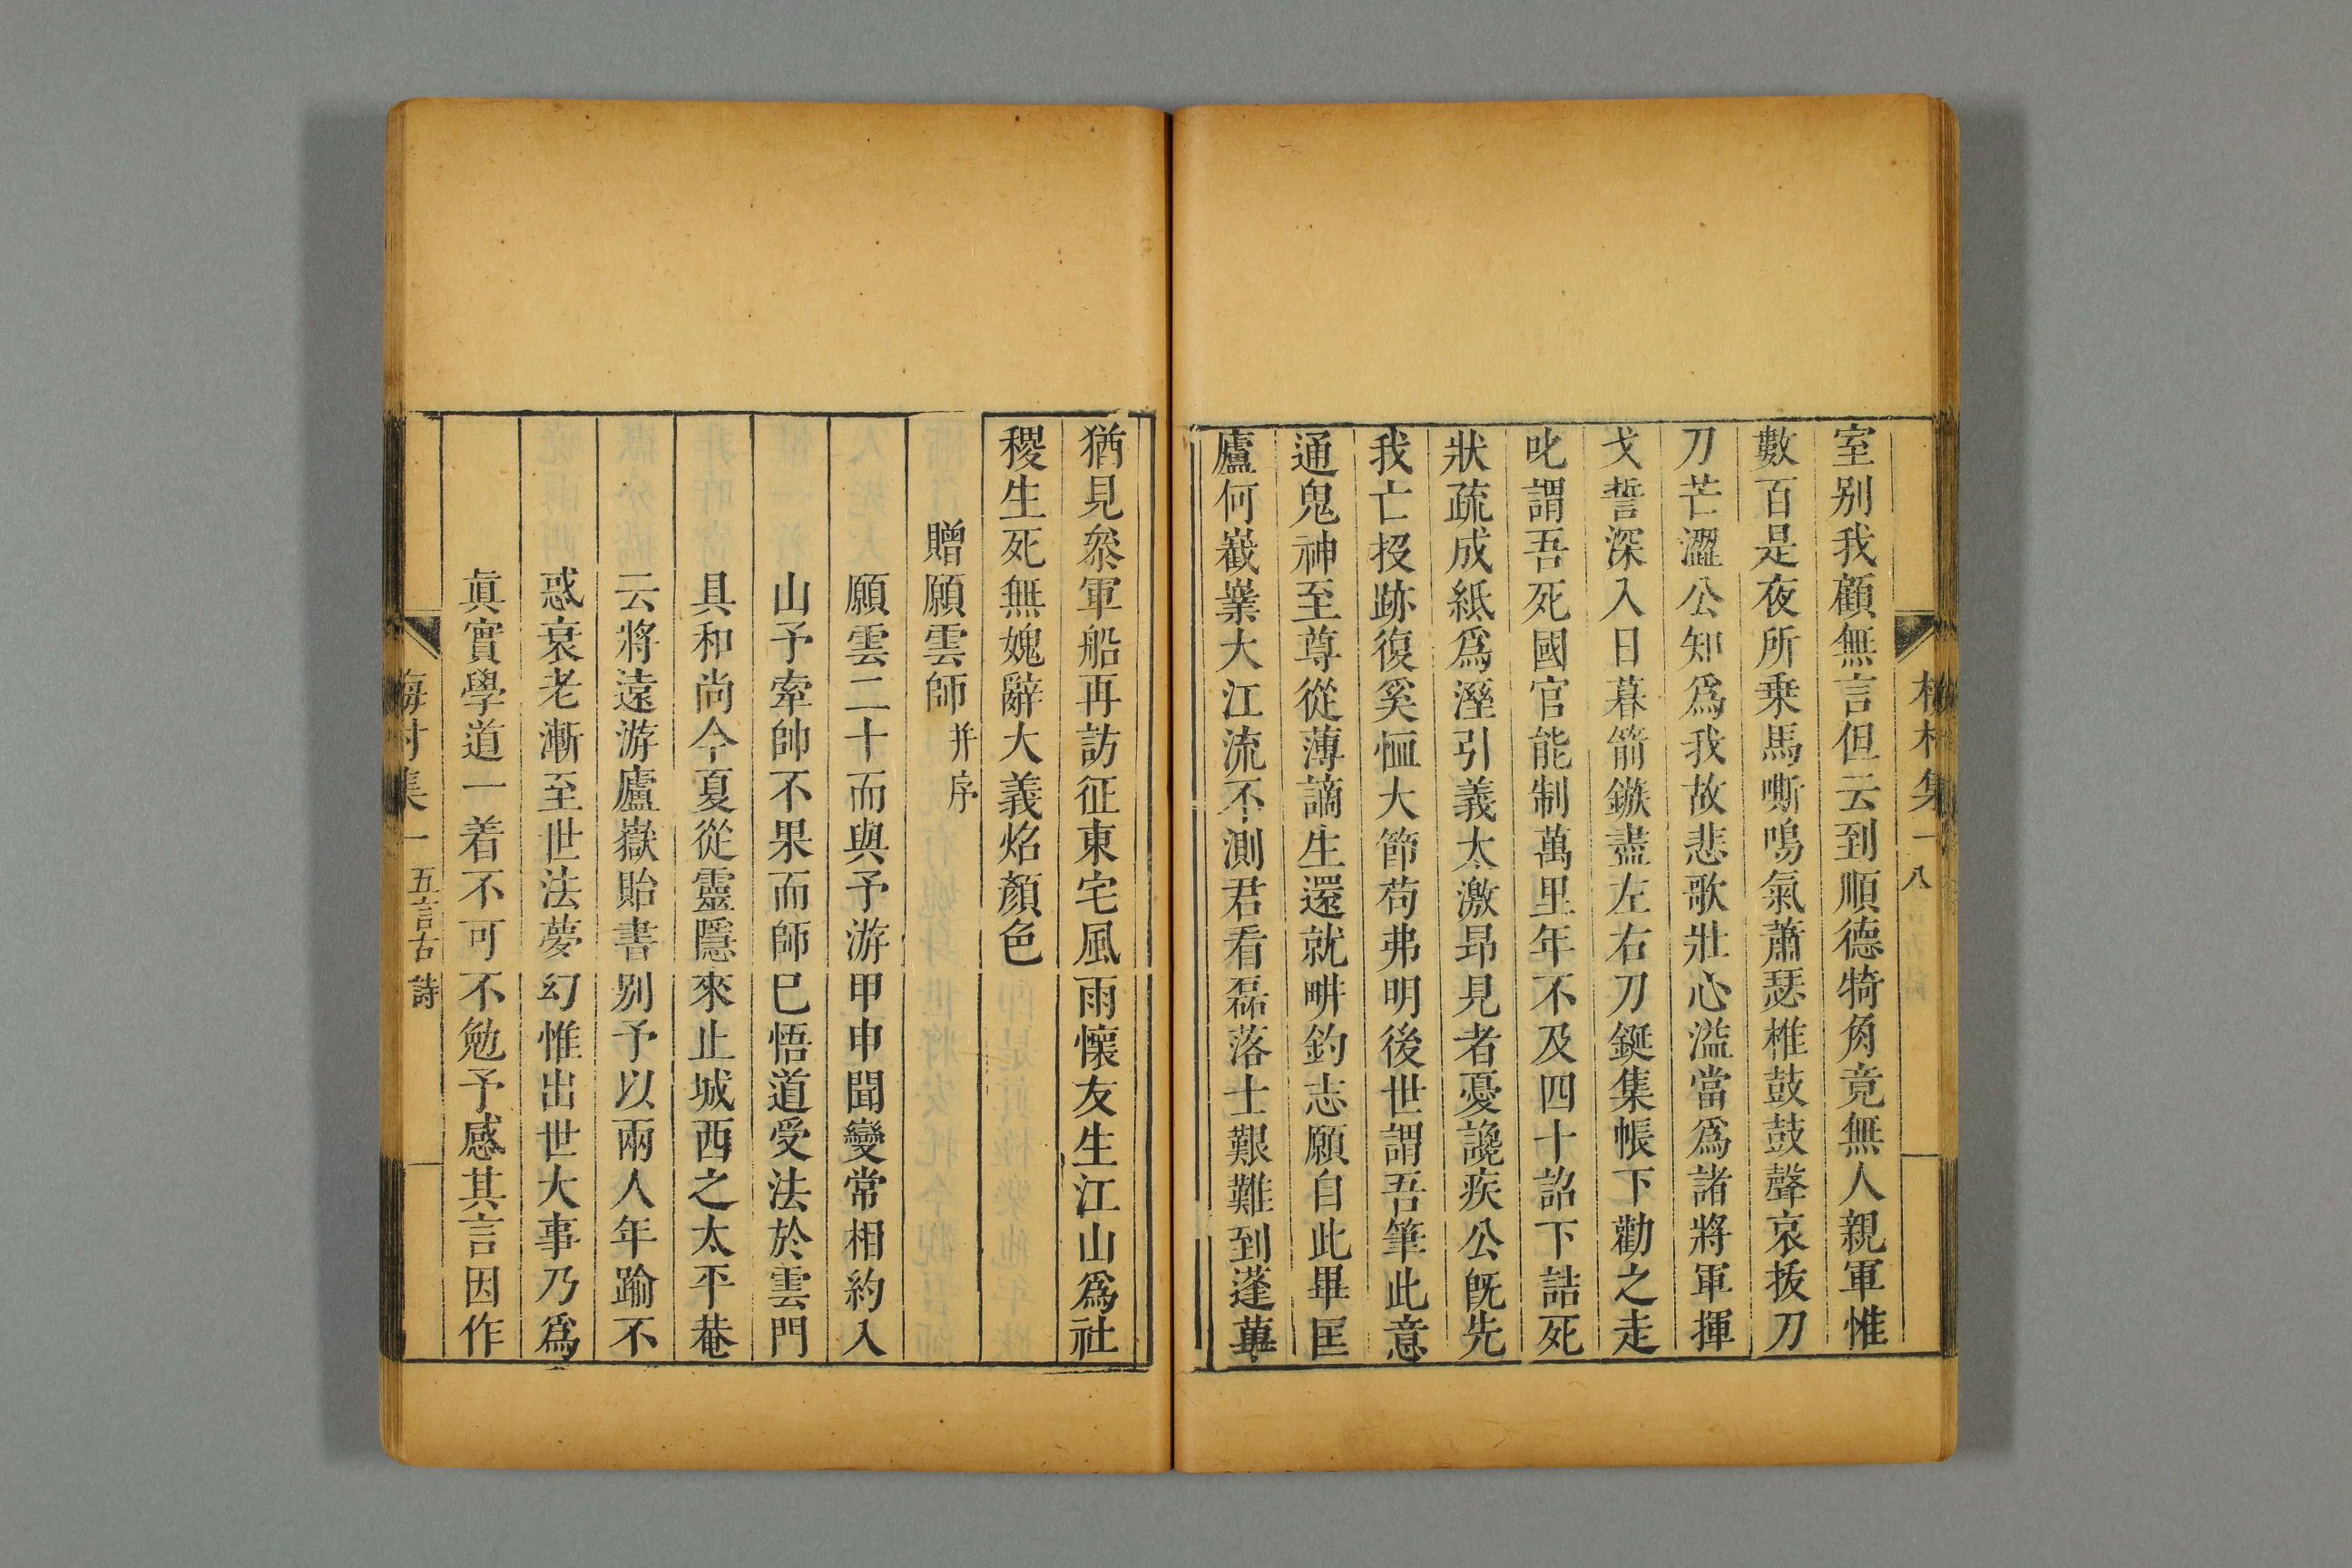 室别我顧無言但云到順德犄角竟無人親軍惟
數百是夜所乗馬嘶鳴氣蕭瑟椎鼓鼓聲哀拔刀
刀芒澀公知爲我故悲歌壯心溢當爲諸將軍揮
戈誓深入日暮箭鏃盡左右刀鋋集帳下勸之走
叱謂吾死國官能制萬里年不及四十詔下詰死
狀疏成紙爲溼引義太激昂見者憂讒疾公旣先
我亡投跡復奚恤大節苟弗明後世謂吾筆此意
通鬼神至尊從薄謫生還就畊釣志願自此畢匡
廬何嶻嶪大江流不測君看磊落士艱難到蓬蓽
梅村集一
八
猶見叅軍船再訪征東宅風雨懷友生江山爲社
稷生死無媿辭大義炤顏色
贈願雲師 并序
願雲二十而與予游甲申聞變常相約入
山予牽帥不果而師巳悟道受法於雲門
具和尚今夏從靈隱來止城西之太平菴
云將遠游廬嶽貽書别予以兩人年踰不
惑衰老漸至世法夢幻惟出世大事乃爲
眞實學道一着不可不勉予感其言因作
梅村集一
五言古詩